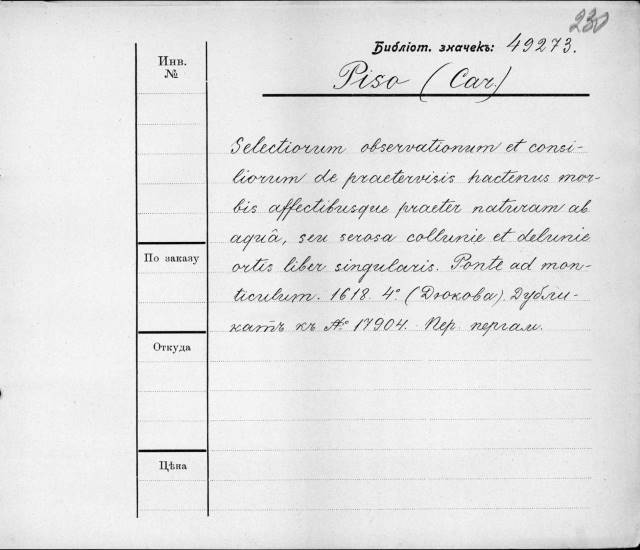 230
Библіот. значекъ: 49273.
Инв.
№
Piso (Car.)
Selectiorum observationum et consi-
liorum de praetervisis hactenus mor-
bis affectibusque praeter naturam ab
aquâ, seu serosa collunie et delunie
ortis liber singularis. Ponte ad mon-
ticulum. 1618. 4º (Дюкова). Дубли-
катъ къ № 17904. Пер. пергам.
По заказу
Откуда
Цѣна